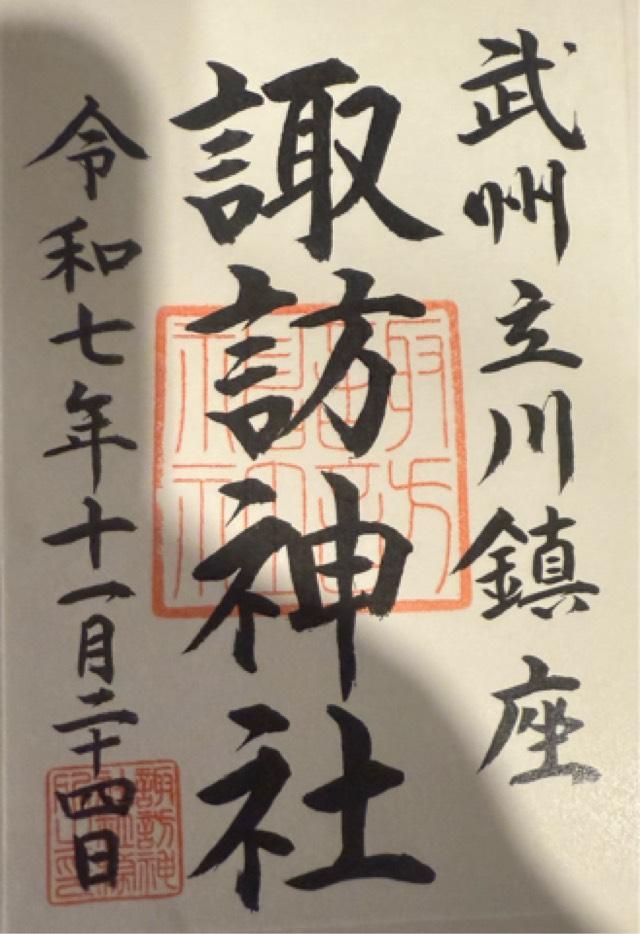 武州立川鎮座
諏訪神社
令和七年十一月二十四日
諏訪
神社